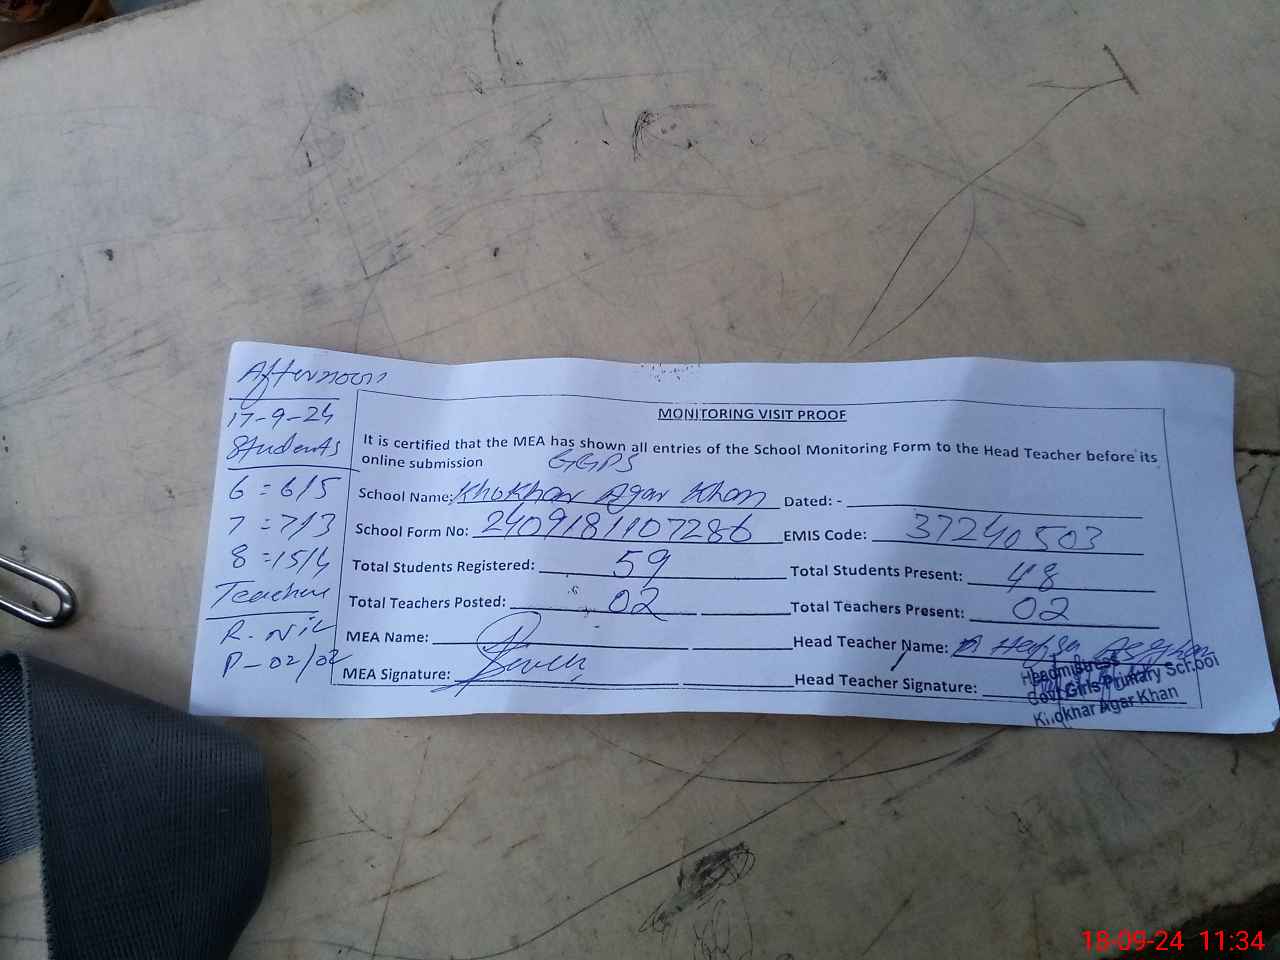 Afternoon
17-9-24
Students
6 = 6/5
7 = 7/3
8 = 15/4
Teachers
R. Nil
P - 02/02
MONITORING VISIT PROOF
It is certified that the MEA has shown all entries of the School Monitoring Form to the Head Teacher before its
online submission GGPS
School Name: Khokhar Agar Khan Dated: -
School Form No: 2409181107286 EMIS Code: 37240503
Total Students Registered: 59 Total Students Present: 48
Total Teachers Posted: 02 Total Teachers Present: 02
MEA Name: Head Teacher Name:
MEA Signature: Head Teacher Signature:
Headmistress
Govt Girls Primary School
Khokhar Agar Khan
18-09-24 11:34